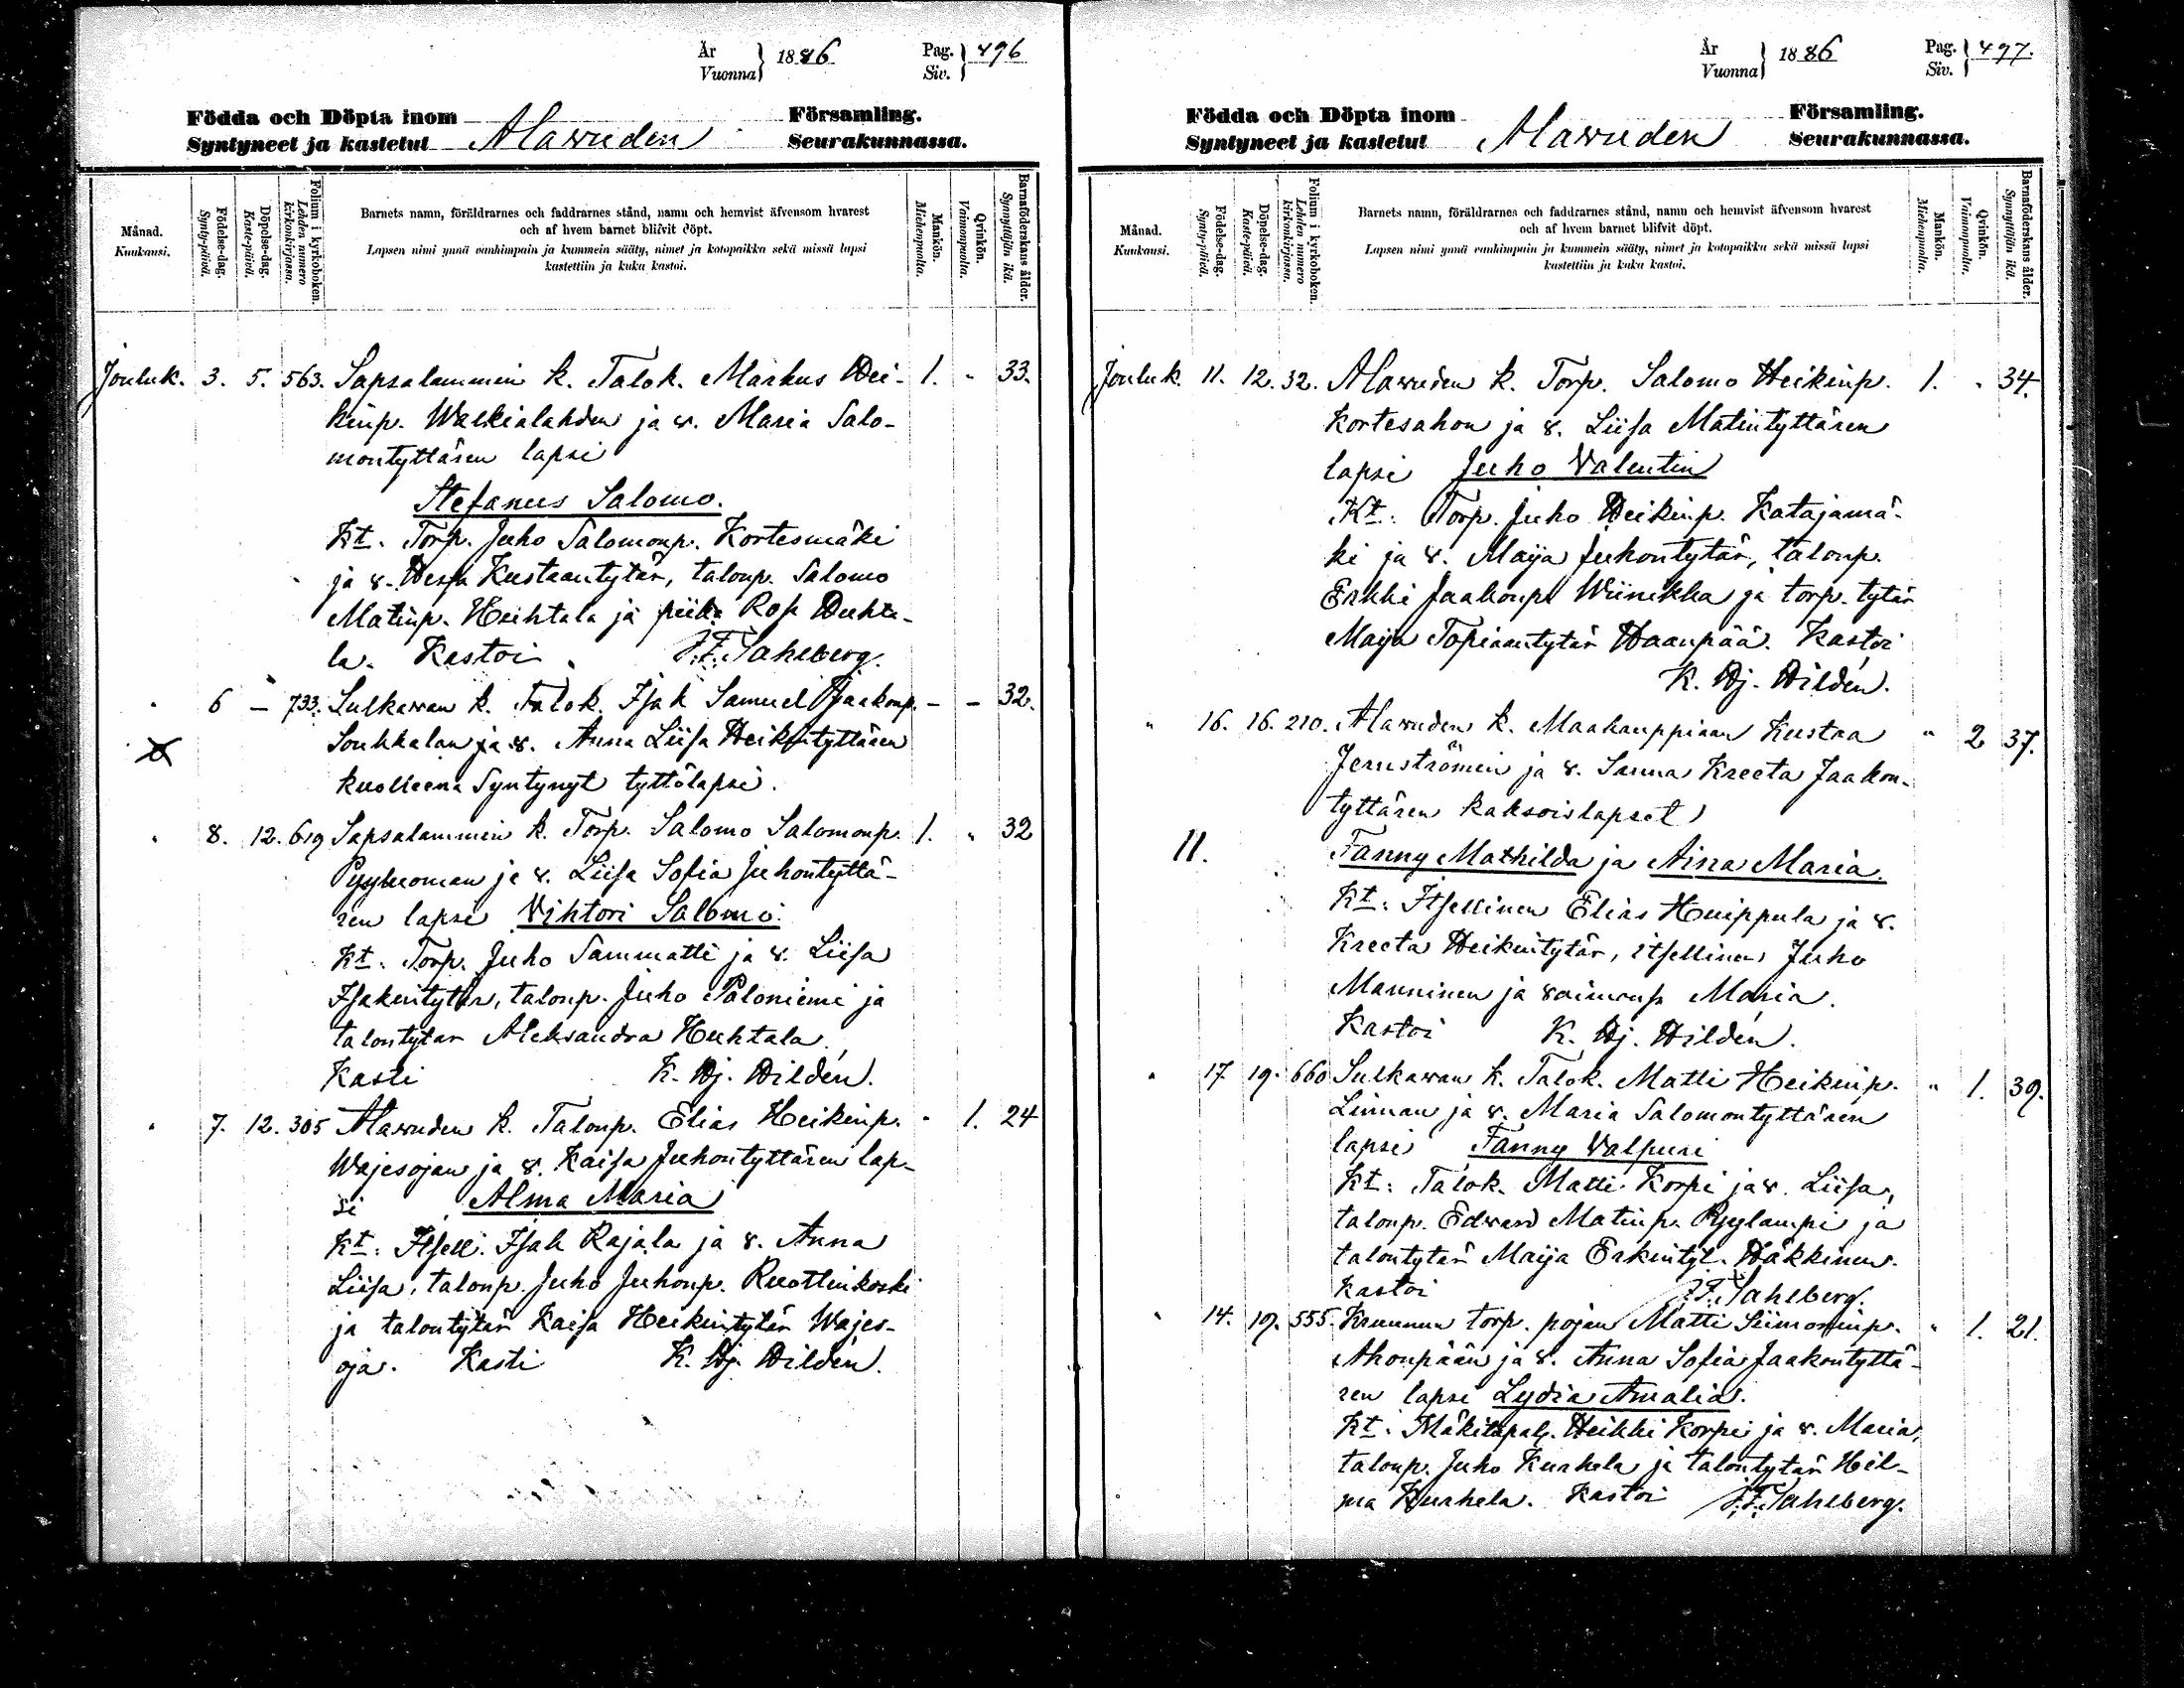 År
Vuonna
1886
Pag.
Siv.
496
Födda och Döpta inom
Församling.
Syntyneet ja kastetut
Alavuden
Seurakunnassa.
Månad.
Kuukausi.
Födelse-dag.
Synty-päivä.
Döpelse-dag.
Kaste-päivä.
Folium i kyrkoboken.
Lehden numero
kirkonkirjassa.
Barnets namn, föräldrarnes och faddrarnes stånd, namn och hemvist äfvensom hvarest
och af hvem barnet blifvit döpt.
Lapsen nimi ynnä vanhimpain ja kummein sääty, nimet ja kotopaikka sekä missä lapsi
kastettiin ja kuka kastoi.
Mankön.
Miehenpuolta.
Qvinkön.
Vaimonpuolta.
Barnaföderskans ålder.
Synnyttäjän ikä.
Jouluk. 3. 5. 563. Sapsalammin k. Talok. Markus Hei- 1. " 33.
kinp. Walkialahden ja v. Maria Salo-
montyttären lapsi
Stefanus Salomo.
Kt. Torp. Juho Salomonp. Kortesmäki
ja v. Hessa Kustaantytär, talonp. Salomo
Matinp. Huhtala ja piika Rosa Huhta-
la. Kastoi J. F. Sahlberg.
" 6 – 733. Sulkavan k. Talok. Isak Samuel Jaakonp. – – 32.
Soukkalan ja v. Anna Liisa Heikintyttären
kuolleena Syntynyt tyttölapsi.
" 8. 12. 619 Sapsalammin k. Torp. Salomo Salomonp. 1. " 32
Pyyluoman ja v. Liisa Sofia Juhontyttä-
ren lapsi Vihtori Salomo.
Kt. Torp. Juho Sammatti ja v. Liisa
Isakintytär, talonp. Juho Paloniemi ja
talontytär Aleksandra Huhtala.
Kasti K. Hj. Hildén.
" 7. 12. 305 Alavuden k. Talonp. Elias Heikinp. " 1. 24
Wajesojan ja v. Kaisa Juhontyttären lap-
si Alma Maria
Kt: Itsell. Isak Rajala ja v. Anna
Liisa, talonp. Juho Juhonp. Ruottinkoski
ja talontytär Kaisa Heikintytär Wajes-
oja. Kasti K. Hj. Hildén.
År
Vuonna
1886
Pag.
Siv.
497.
Födda och Döpta inom
Församling.
Syntyneet ja kastetut
Alavuden
Seurakunnassa.
Månad.
Kuukausi.
Födelse-dag.
Synty-päivä.
Döpelse-dag.
Kaste-päivä.
Folium i kyrkoboken.
Lehden numero
kirkonkirjassa.
Barnets namn, föräldrarnes och faddrarnes stånd, namn och hemvist äfvensom hvarest
och af hvem barnet blifvit döpt.
Lapsen nimi ynnä vanhimpain ja kummein sääty, nimet ja kotopaikka sekä missä lapsi
kastettiin ja kuka kastoi.
Mankön.
Miehenpuolta.
Qvinkön.
Vaimonpuolta.
Barnaföderskans ålder.
Synnyttäjän ikä.
Jouluk. 11. 12. 32. Alavuden k. Torp. Salomo Heikinp. 1. " 34.
Kortesahon ja v. Liisa Matintyttären
lapsi Juho Valentin
Kt: Torp. Juho Heikinp. Katajamä-
ki ja v. Maija Juhontytär, talonp.
Erkki Jaakonp. Wiinikka ja torp. tytär
Maija Topiaantytär Haanpää. Kastoi
K. Hj. Hildén.
" 16. 16. 210. Alavuden k. Maakauppiaan Kustaa " 2 37.
Jernströmin ja v. Sanna Kreeta Jaakon-
tyttären kaksoislapset
11. Fanny Mathilda ja Aina Maria.
Kt: Itsellinen Elias Huippula ja v.
Kreeta Heikintytär, itsellinen Juho
Manninen ja vaimonsa Maria.
Kastoi K. Hj. Hildén.
" 17 19. 660 Sulkavan k. Talok. Matti Heikinp. " 1. 39.
Linnan ja v. Maria Salomontyttären
lapsi Fanny Valpuri
Kt: Talok. Matti Korpi ja v. Liisa,
talonp. Edvard Matinp. Pyylampi ja
talontytär Maija Erkintyt. Häkkinen.
Kastoi J. F. Sahlberg.
" 14. 19. 555. Kruunun torp. pojan Matti Siimoninp. " 1. 21.
Ahonpään ja v. Anna Sofia Jaakontyttä-
ren lapsi Lydia Amalia.
Kt: Mäkitupal. Heikki Korpi ja v. Maria,
talonp. Juho Kurhela ja talontytär Hil-
ma Kurhela. Kastoi J. F. Sahlberg.